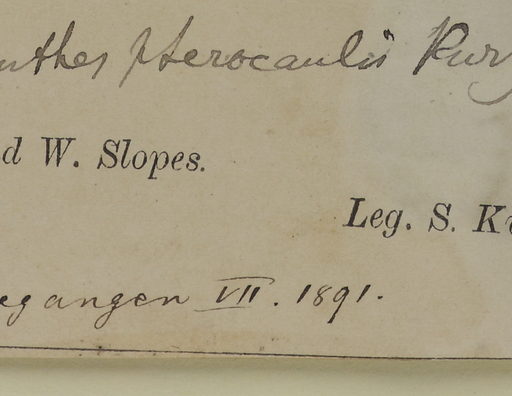 nthes pterocaulis Kurz
d W. Slopes.
Leg. S. Ku
egangen VII. 1891.